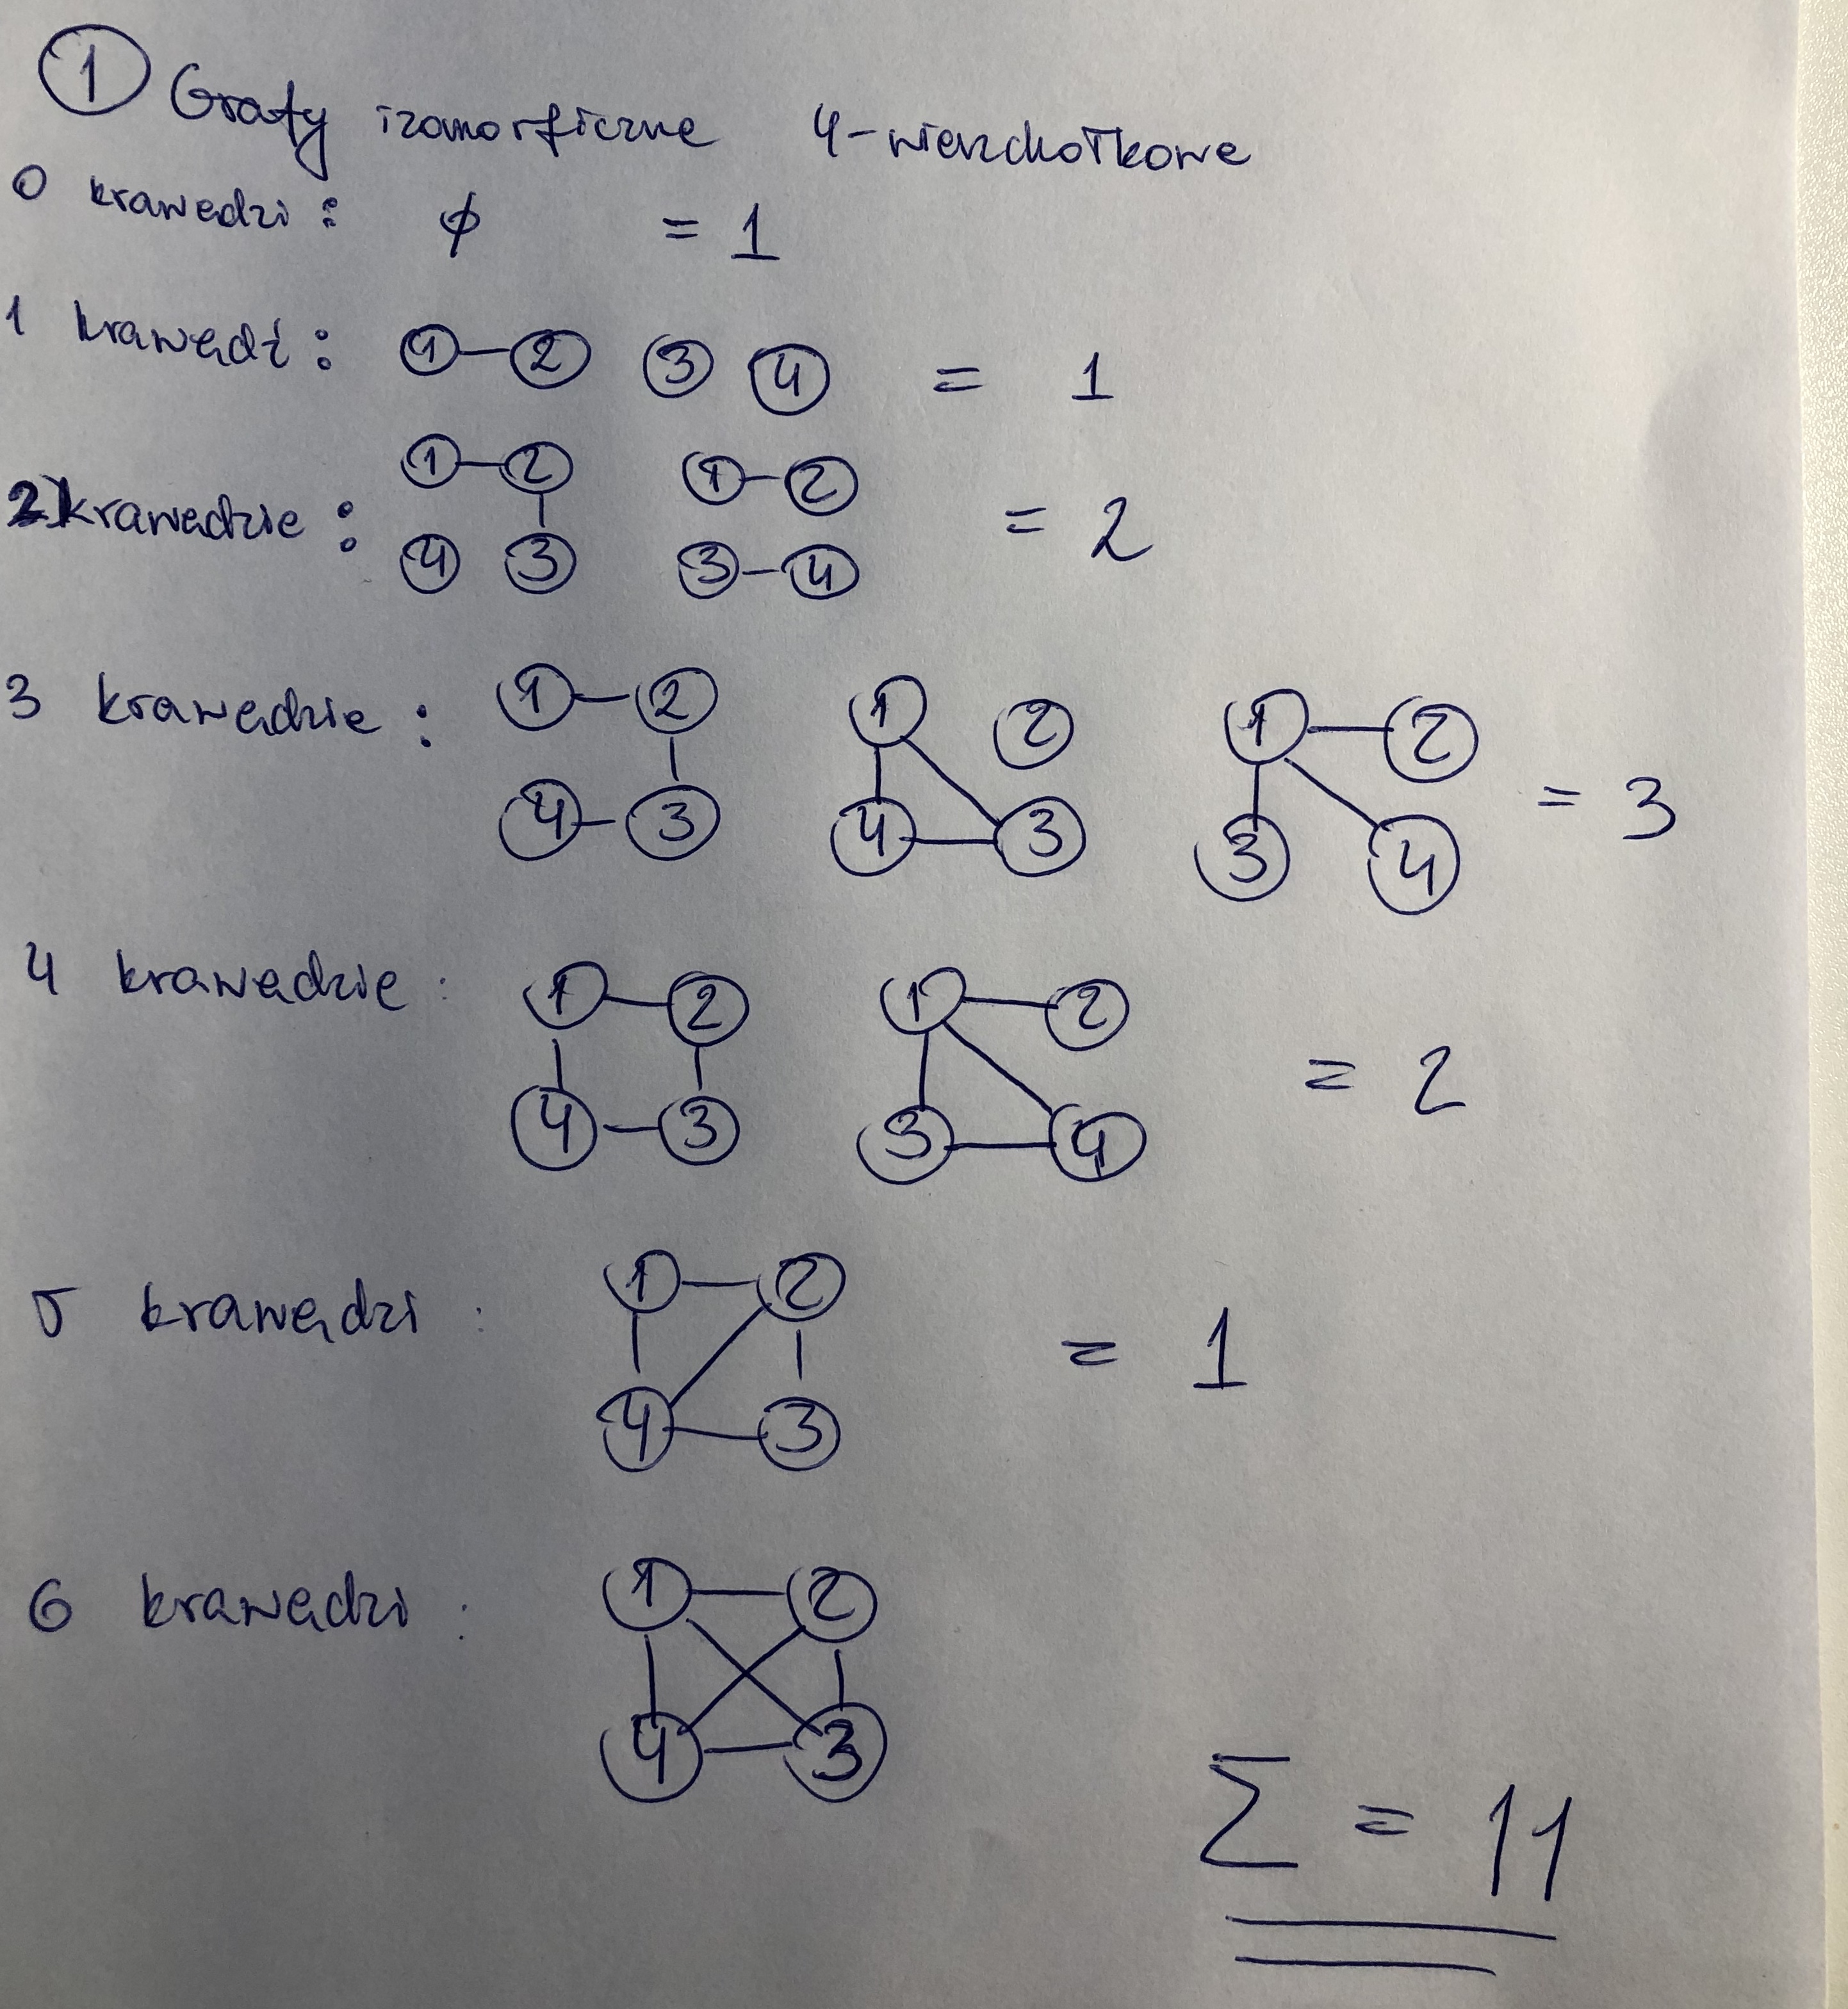 1 Grafy izomorficzne 4-wierzchołkowe
0 krawędzi : φ = 1
1 krawędź : 1 2 3 4 = 1
1 2 1 2
2 krawędzie : = 2
4 3 3 4
3 krawędzie : 1 2 1 2 1 2
4 3 4 3 3 4 = 3
4 krawędzie : 1 2 1 2
4 3 3 4 = 2
5 krawędzi : 1 2 = 1
4 3
6 krawędzi : 1 2
4 3
Σ = 11